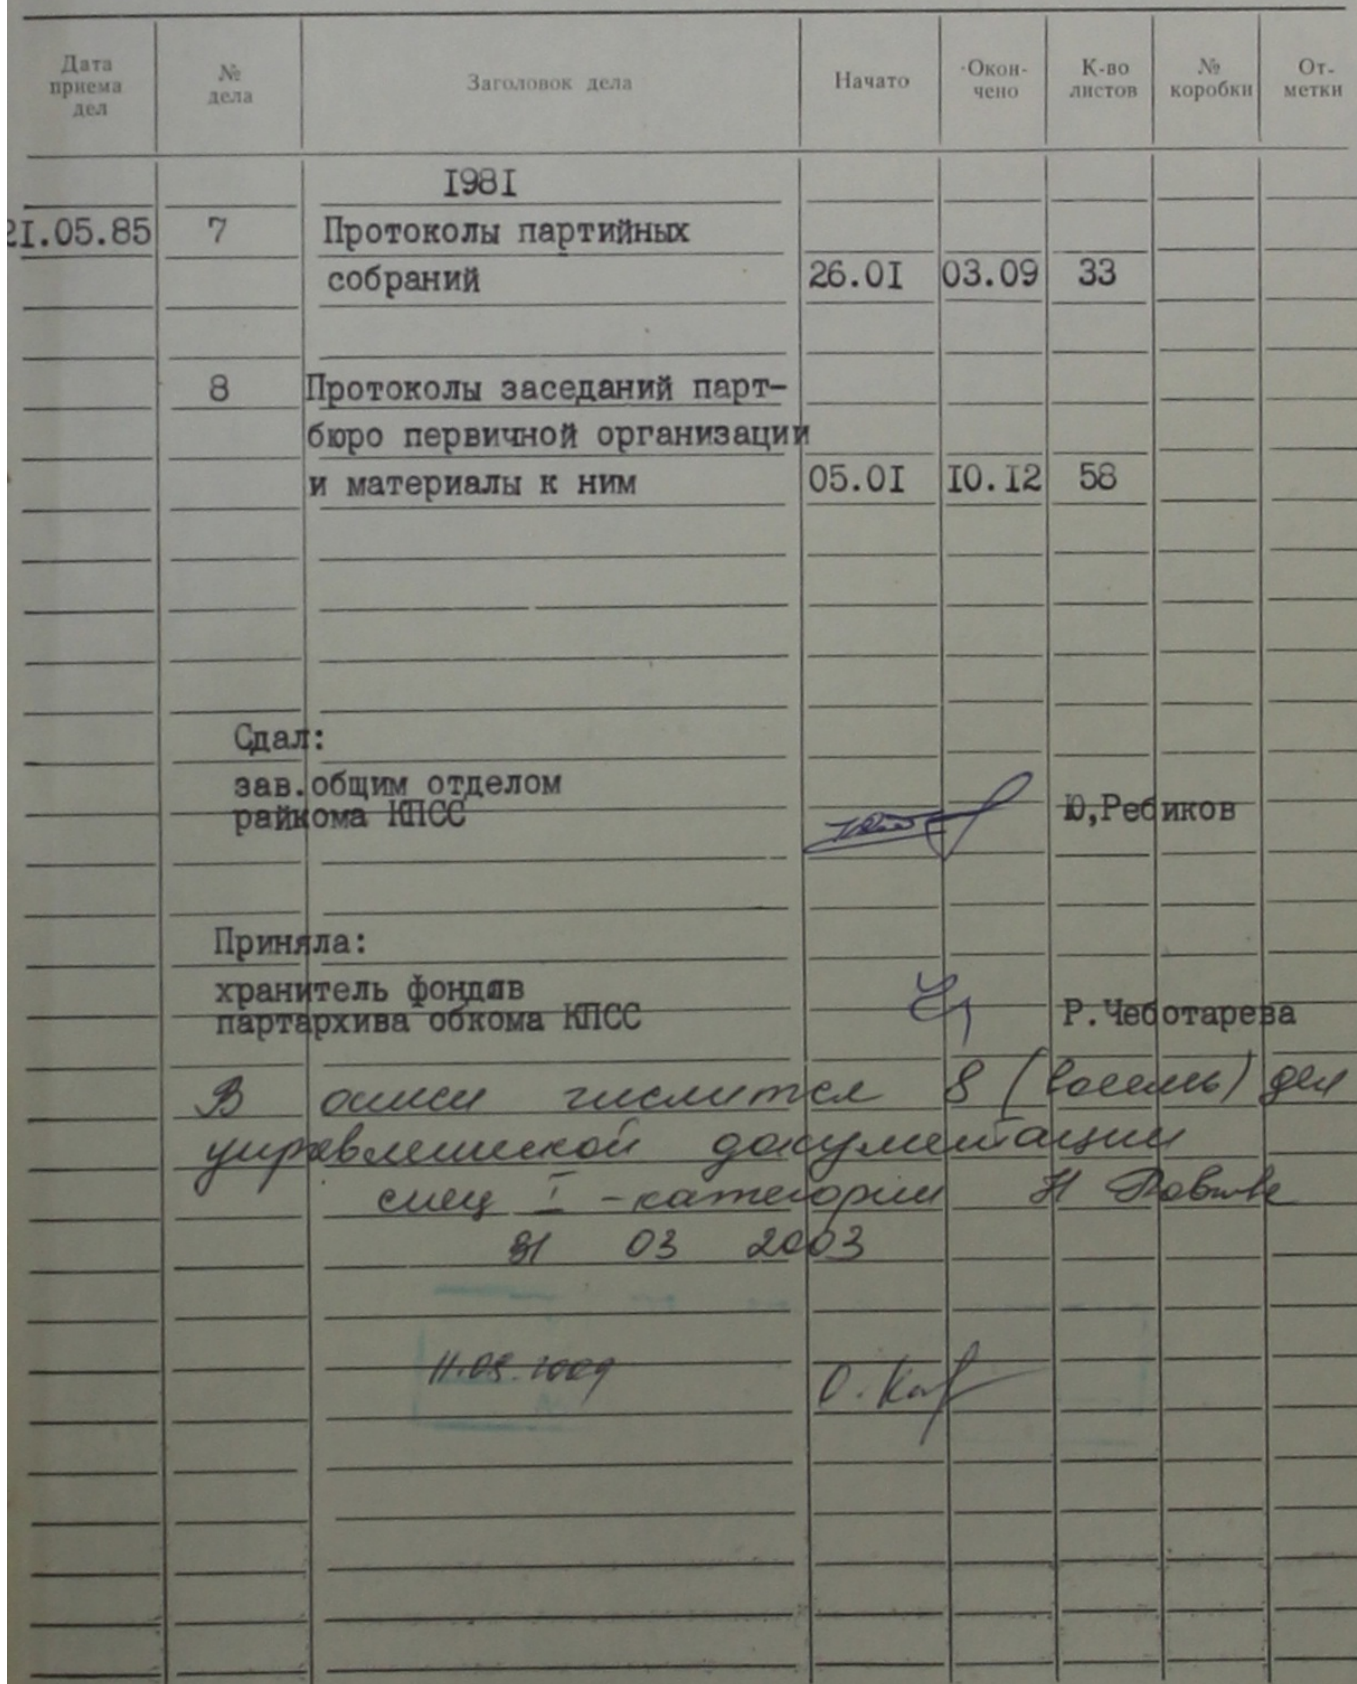 Дата приема дел № дела Заголовок дела Начато Окон-чено К-во листов № коробки От-метки
I98I
2I.05.85 7 Протоколы партийных
собраний 26.0I 03.09 33
8 Протоколы заседаний парт-
бюро первичной организации
и материалы к ним 05.0I I0.I2 58
Сдал:
зав.общим отделом
райкома КПСС Ю,Ребиков
Приняла:
хранитель фондов
партархива обкома КПСС Р.Чеботарева
В описи числится 8 (восемь) дел
управленческой документации
спец I - категории Н
31 03 2003
11.08.2009 О.